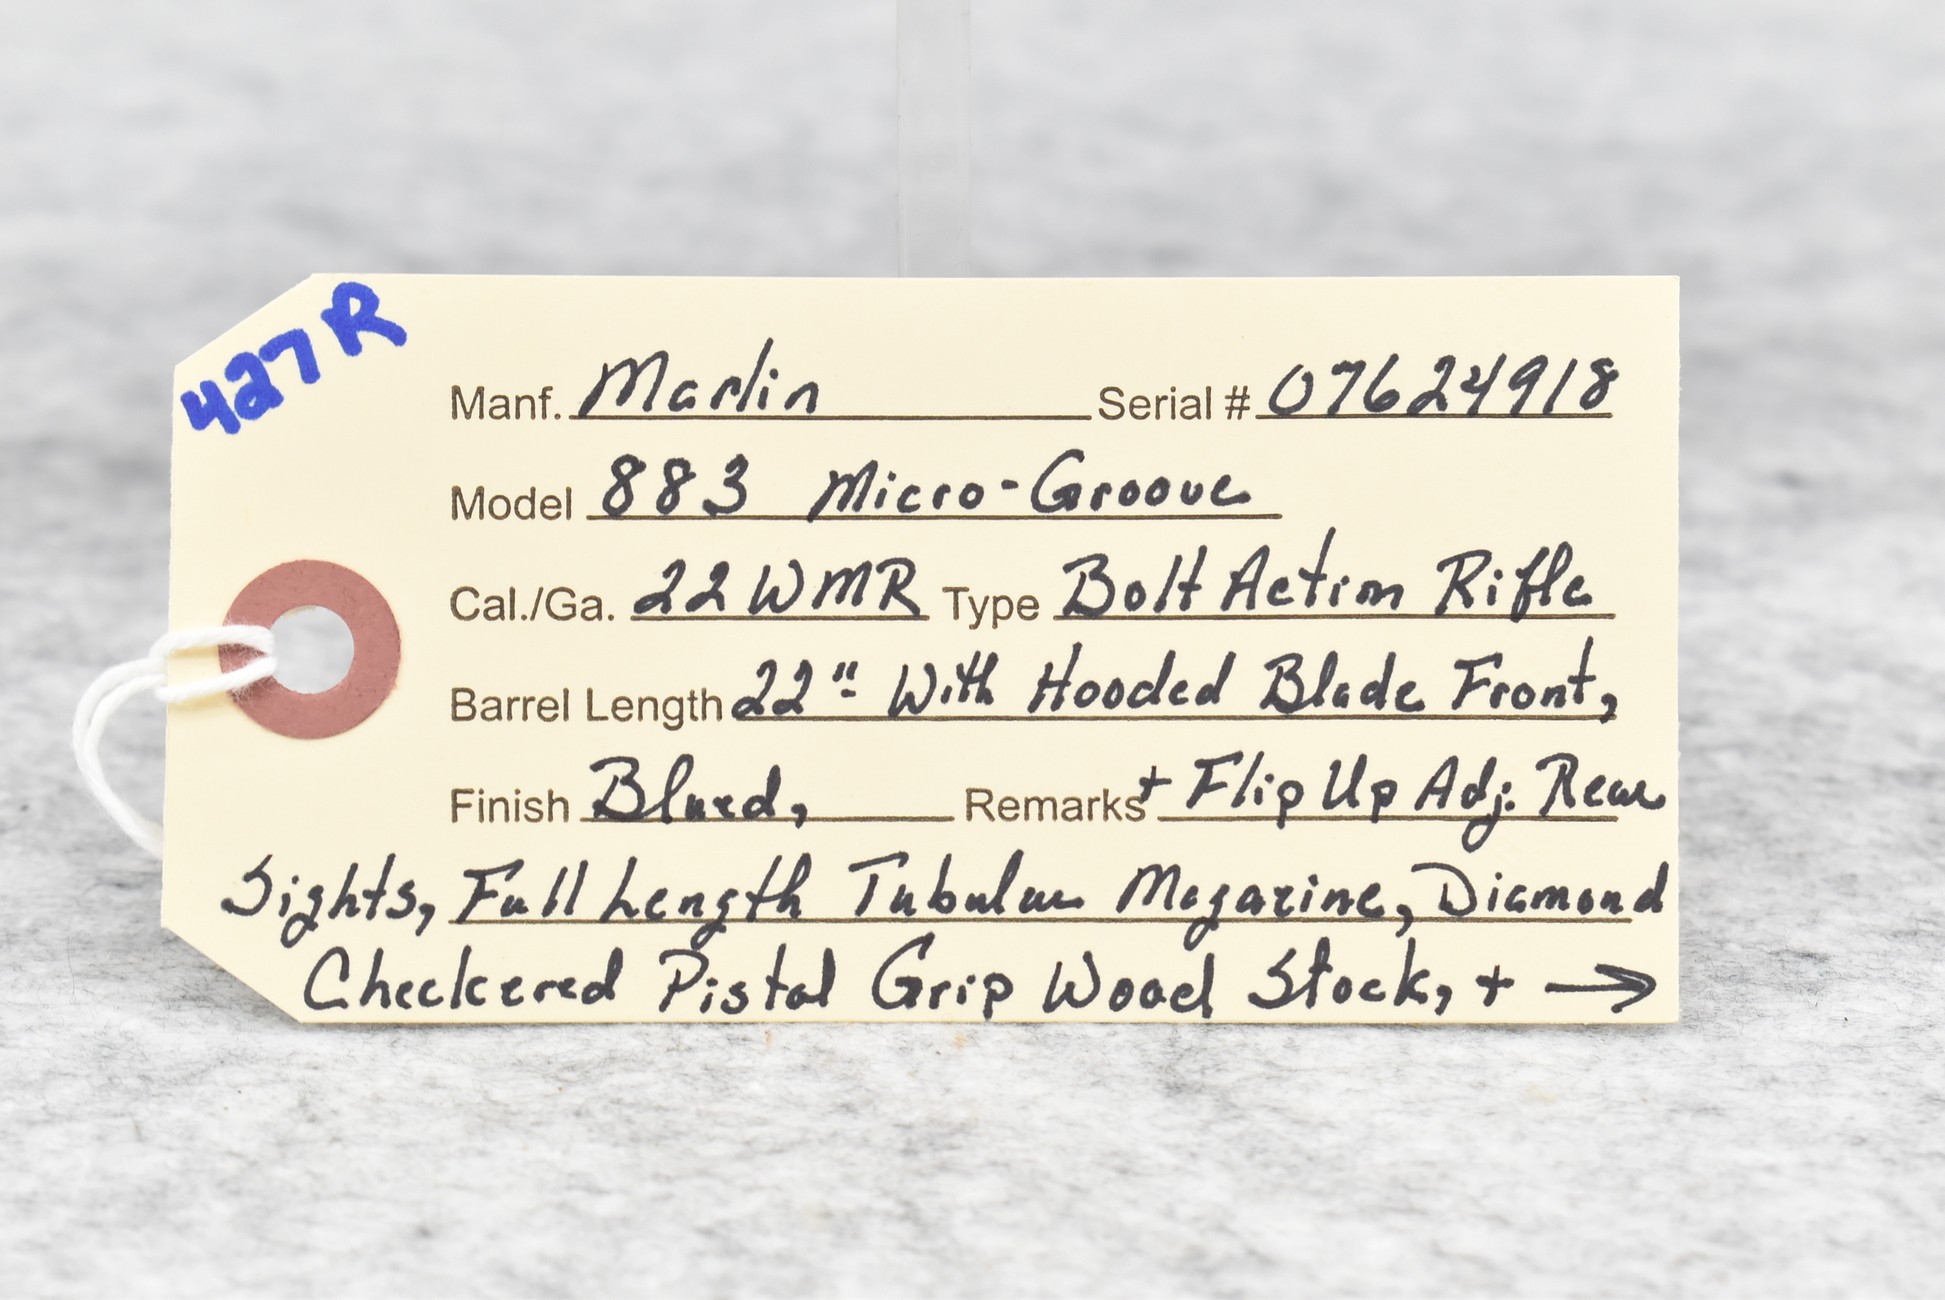 427R
Manf. Marlin Serial # 07624918
Model 883 Micro-Groove
Cal./Ga. 22 WMR Type Bolt Action Rifle
Barrel Length 22" With Hooded Blade Front,
Finish Blued, Remarks + Flip Up Adj. Rear
Sights, Full Length Tubular Magazine, Diamond
Checkered Pistol Grip Wood Stock, + →